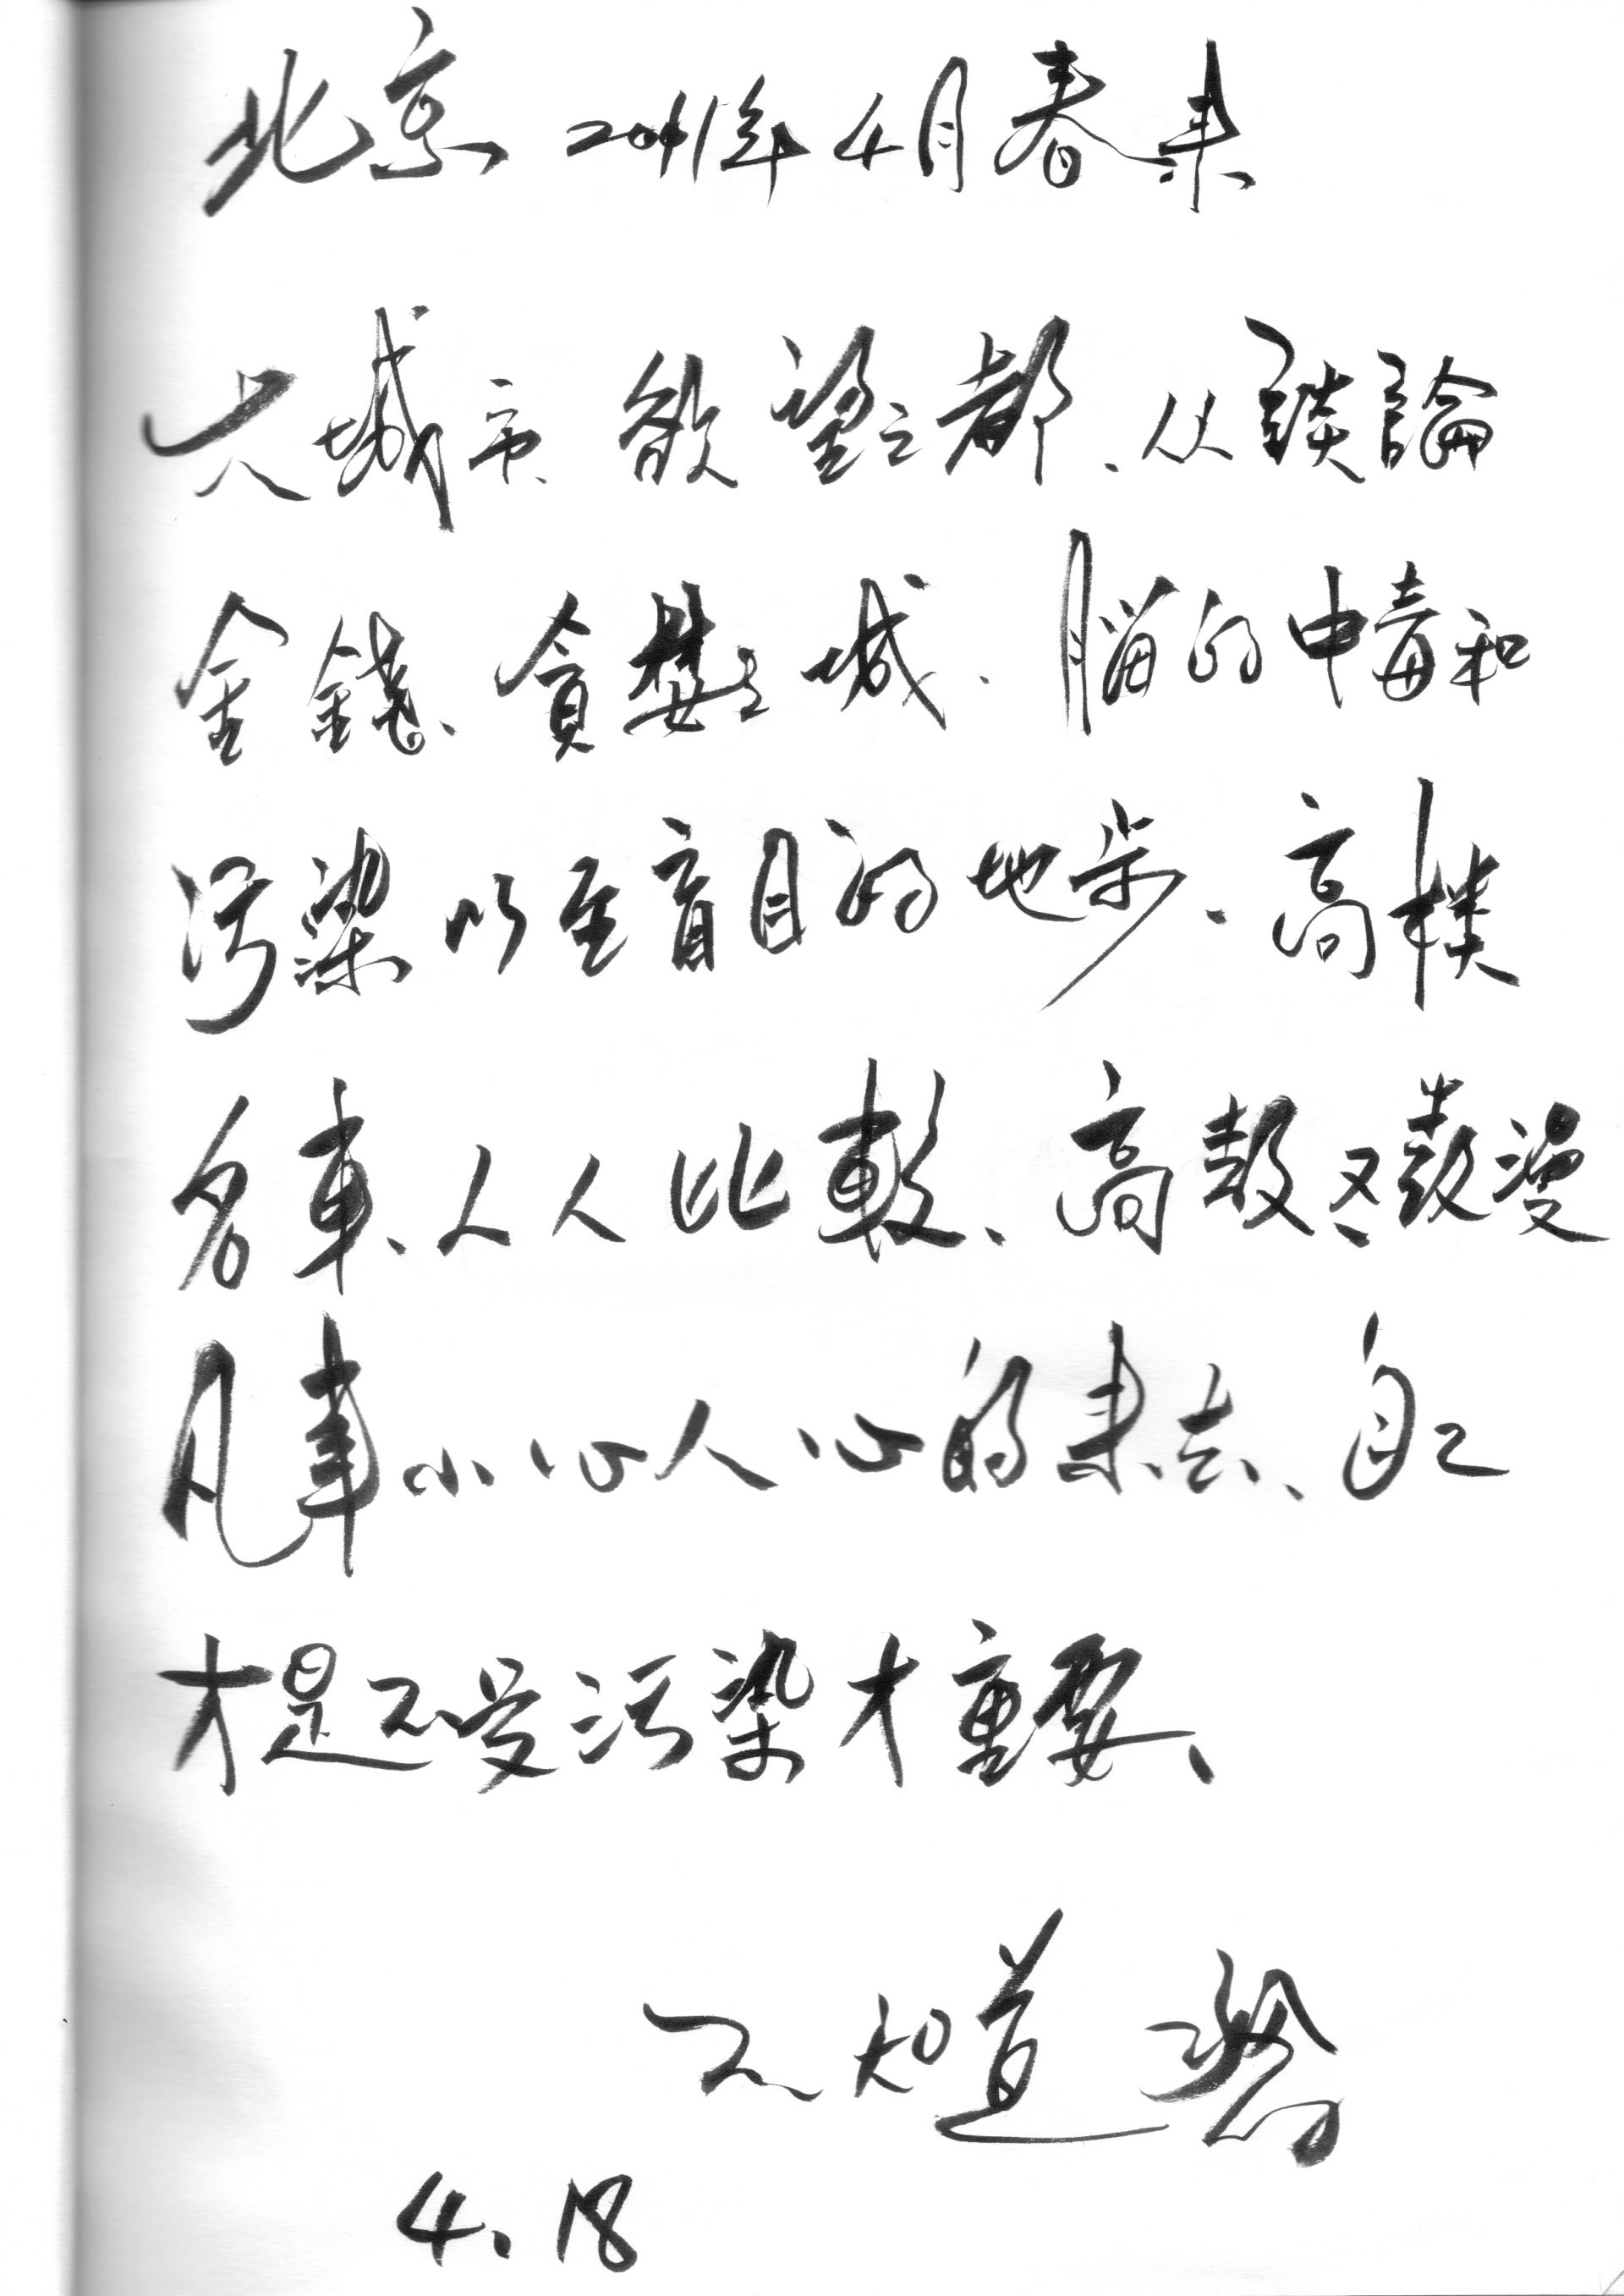 北京 2011年 4月 春来
大城市、欲望之都、从談論
金錢、貪婪之城、腦的中毒和
污染以至盲目的地步、高樓
名車、人人比較、高殼多毂漫
凡事小心人心的来去、自己
才是不受污染才重要、
不知道
4、18